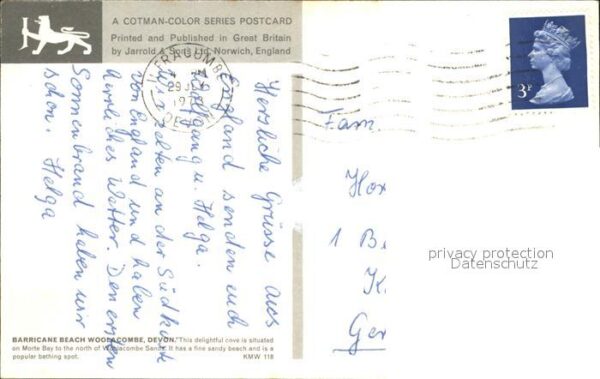 A COTMAN-COLOR SERIES POSTCARD
Printed and Published in Great Britain
by Jarrold & Sons Ltd, Norwich, England
ILFRACOMBE
29 J
197
DEV
3P
Herzliche Grüsse aus
England senden euch
Wolfgang u. Helga.
Wir zelten an der Südküste
von England und haben
herrliches Wetter. Den ersten
Sonnenbrand haben wir
schon. Helga
Fam.
Hox
1 Be
K.
Ger
privacy protection
Datenschutz
BARRICANE BEACH WOOLACOMBE, DEVON. "This delightful cove is situated
on Morte Bay to the north of Woolacombe Sands. It has a fine sandy beach and is a
popular bathing spot.
KMW 118